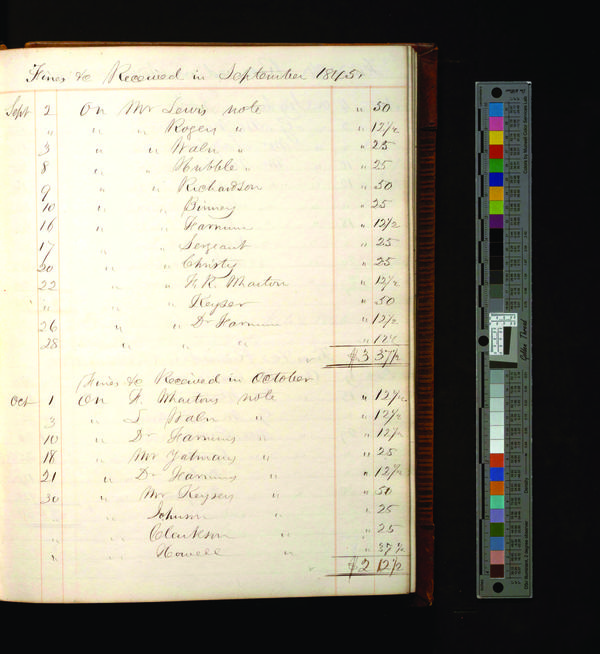 Fines &c Received in September 1845.
Sept 2 On Mr Lewis note " 50
" " " Rogers " " 12½
3 " " Waln " " 25
8 " " Hubble " " 25
9 " " Richardson " 50
10 " " Binney " 25
16 " " Farnum " 12½
17 " " Sergeant " 25
20 " " Christy " 25
22 " " F. R. Wharton " 12½
" " " Keyser " 50
26 " " Dr Farnum " 12½
28 " " " " 12½
$3 37½
Fines &c Received in October
Oct 1 On F. Whartons note " 12½
3 " S Waln " " 12½
10 " Dr Farnums " " 12½
18 " Mr Yatmans " " 25
21 " Dr Farnums " " 12½
30 " Mr Keysers " " 50
" " Johnson " " 25
" " Clarkson " " 25
" " Howell " " 37½
$2 12½
Golden Thread